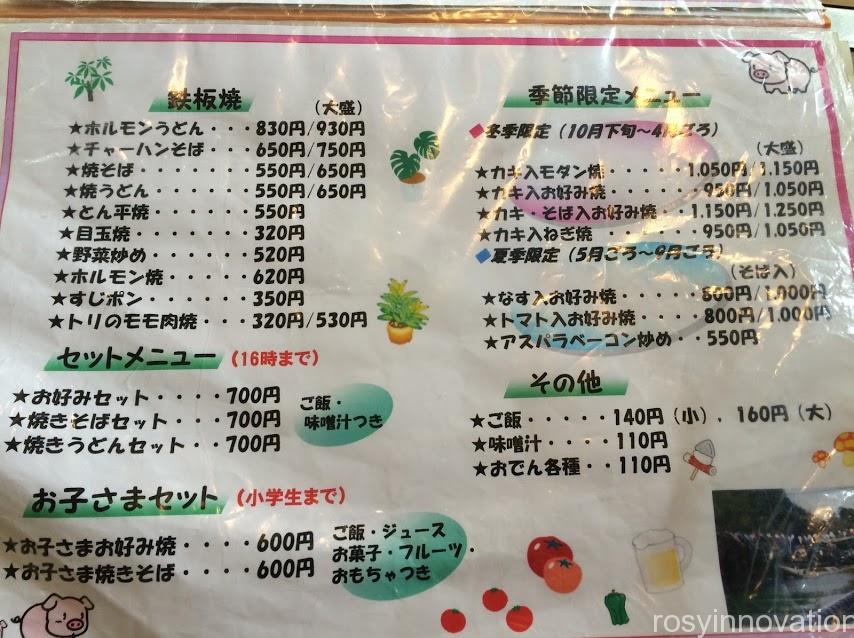 鉄板焼
(大盛)
★ホルモンうどん・・・830円/930円
★チャーハンそば・・・・650円/750円
★焼そば・・・・・・・・550円/650円
★焼うどん・・・・・・・550円/650円
★とん平焼・・・・・・・550円
★目玉焼・・・・・・・・320円
★野菜炒め・・・・・・・520円
★ホルモン焼・・・・・・620円
★すじポン・・・・・・・350円
★トリのモモ肉焼・・・320円/530円
セットメニュー (16時まで)
★お好みセット・・・・700円
★焼きそばセット・・・700円
★焼きうどんセット・・700円
ご飯・
味噌汁つき
お子さまセット (小学生まで)
★お子さまお好み焼・・・・600円
★お子さま焼きそば・・・・600円
ご飯・ジュース
お菓子・フルーツ・
おもちゃつき
季節限定メニュー
◆冬季限定(10月下旬〜4月ごろ)
(大盛)
★カキ入モダン焼・・・・・1.050円/1.150円
★カキ入お好み焼・・・・・950円/1.050円
★カキ・そば入お好み焼・・1.150円/1.250円
★カキ入ねぎ焼・・・・・・950円/1.050円
◆夏季限定(5月ごろ〜9月ごろ)
(そば入)
★なす入お好み焼・・・・・800円/1.000円
★トマト入お好み焼・・・・800円/1.000円
★アスパラベーコン炒め・・550円
その他
★ご飯・・・・・140円(小),160円(大)
★味噌汁・・・・110円
★おでん各種・・110円
rosyinnovation